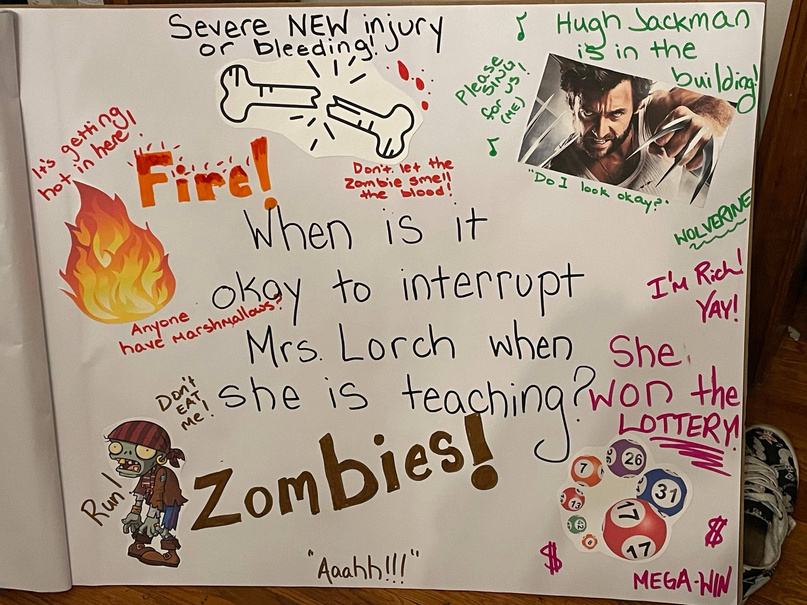 Severe NEW injury
or bleeding!
Hugh Jackman
is in the
building!
Please
SING
for us!
(ME)
"Do I look okay?"
WOLVERINE
It's getting
hot in here!
Fire!
Don't let the
Zombie smell
the blood!
When is it
okay to interrupt
Mrs. Lorch when
she is teaching?
Anyone
have Marshmallows?
I'm Rich!
YAY!
She
won the
LOTTERY!
Don't
EAT
me!
Run!
Zombies!
"Aaahh!!!"
7
26
31
13
17
17
42
$
$
MEGA-WIN